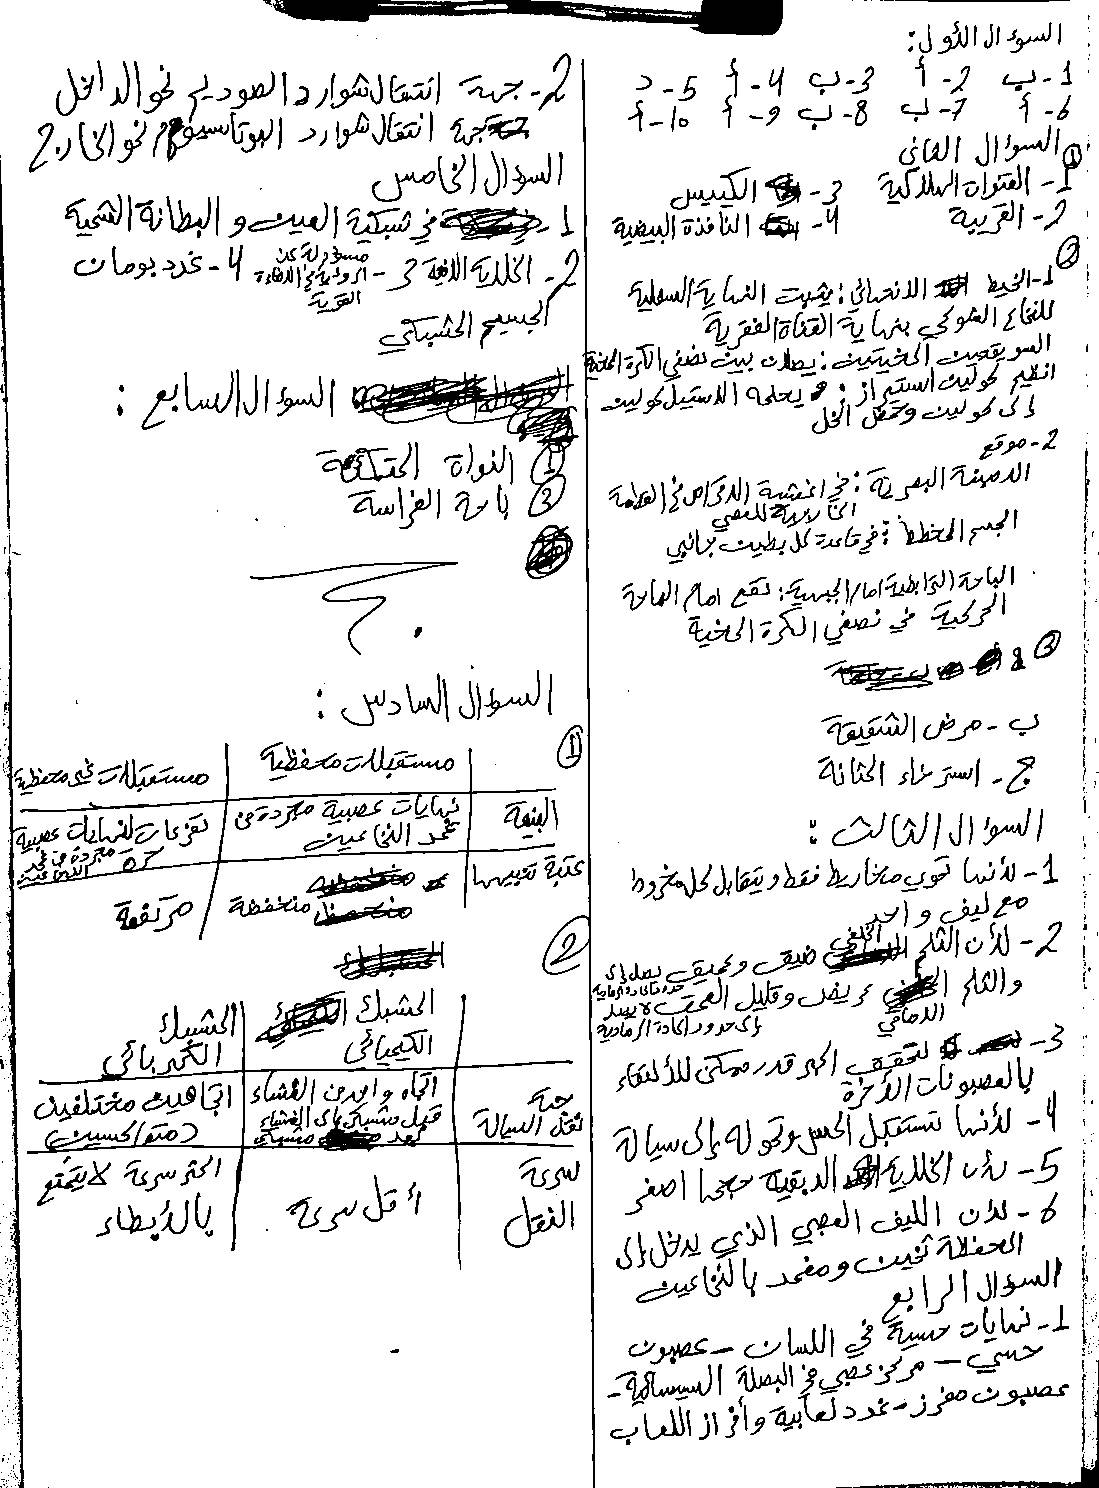 السؤال الأول:
1- ب 2- أ 3- ب 4- أ 5- د
6- أ 7- ب 8- ب 9- أ 10- أ
السؤال الثاني
①
1- القنوات الهلالية 3- الكييس
2- القريبة 4- النافذة البيضية
②
1- الخيط الانتهائي: يثبت النهاية السفلية
للنخاع الشوكي بنهاية القناة الفقرية
السويقتين المخيتين: يصلان بين نصفي الكرة المخية
انظيم كولين استيراز: يحلمه الاستيل كولين
إلى كولين وحمض الخل
2- موقع
الصفيحة البصرية: في أغشية الأقراص في القطعة
الخارجية للعصي
الجسم المخطط: في قاعدة كل بطين جانبي
الباحة الترابطية أمام الجبهية: تقع امام الباحة
الحركية في نصفي الكرة المخية
③
ب- مرض الشقيقة
ج- استرخاء المثانة
السؤال الثالث:
1- لأنها تحوي مخاريط فقط ويتقابل كل مخروط
مع ليف واحد
2- لأن الثلم الخلفي ضيق وعميق يصل إلى
حدود المادة الرمادية
والثلم الأمامي عريض وقليل العمق لا يصل
إلى حدود المادة الرمادية
3- لتحقيق اكبر قدر ممكن للألتقاء
بالعصبونات الأخرى
4- لأنها تستقبل الحس وتحوله إلى سيالة
5- لأن الخلايا الدبقية حجمها اصغر
6- لأن الليف العصبي الذي يدخل إلى
المحفظة ثخين ومغمد بالنخاعين
السؤال الرابع
1- نهايات حسية في اللسان - عصبون
حسي - مركز عصبي في البصلة السيسائية -
عصبون مفرز - غدد لعابية وأفراز اللعاب
2- جهة انتقال شوارد الصوديوم نحو الداخل
جهة انتقال شوارد البوتاسيوم نحو الخارج
السؤال الخامس
1- في شبكية العين و البطانة الشمية
2- الخلايا الأفقية 3- مسؤولة عن الرؤية في الاضاءة القوية 4- غدد بومان
الجسيم الشبكي
السؤال السابع:
① النواة المتكئة
③ باحة الفراسة
السؤال السادس:
①
مستقبلات محفظية مستقبلات غير محفظية
البنية نهايات عصبية مجردة من غمد النخاعين تفرعات لنهايات عصبية حرة مجردة من غمد النخاعين
عتبة تنبيهها منخفضة مرتفعة
②
المشبك الكيميائي المشبك الكهربائي
جهة نقل السيالة اتجاه واحد من الغشاء قبل مشبكي إلى الغشاء بعد مشبكي اتجاهين مختلفين (متعاكسين)
سرعة النقل أقل سرعة اكثر سرعة لا يتمتع بالأبطاء